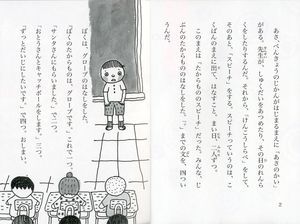 あさ、べんきょうのじかんがはじまるまえに「あさのかい」
がある。先生が、しゅくだいをあつめたり、その日のれんら
くをしたりするんだ。それから、「けんこうしらべ」をして、
そのあと、「スピーチ」をする。スピーチっていうのは、こ
くばんのまえに出て、はなすこと。まい日、一人ずつ。
このまえは「たからもののスピーチ」だった。みんな、じ
ぶんのたからもののはなしをした。「。」までの文を、四つい
うんだ。
2
ぼくは、グローブのはなしをした。
「ぼくのたからものは、グローブです」これで一つ。
「サンタさんにもらいました」で二つ。
「おとうさんとキャッチボールをします」三つ。
「ずっとだいじにしたいです」で四つ。おしまい。